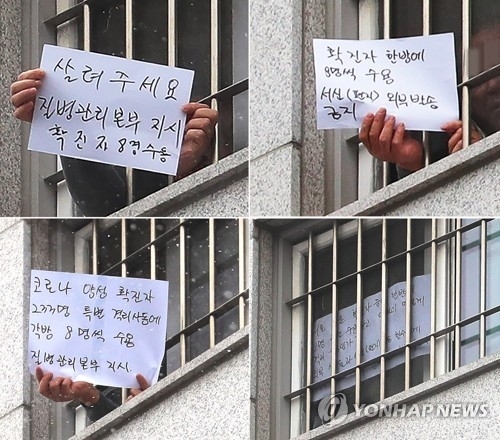 살려주세요
질병관리본부 지시
확진자 8명수용
확진자 한방에
8명씩 수용
서신(편지) 외부발송
금지
코로나 양성 확진자
233명 특별 격리사동에
각방 8명씩 수용
질병관리본부 지시.
YONHAP NEWS
YONHAP NEWS